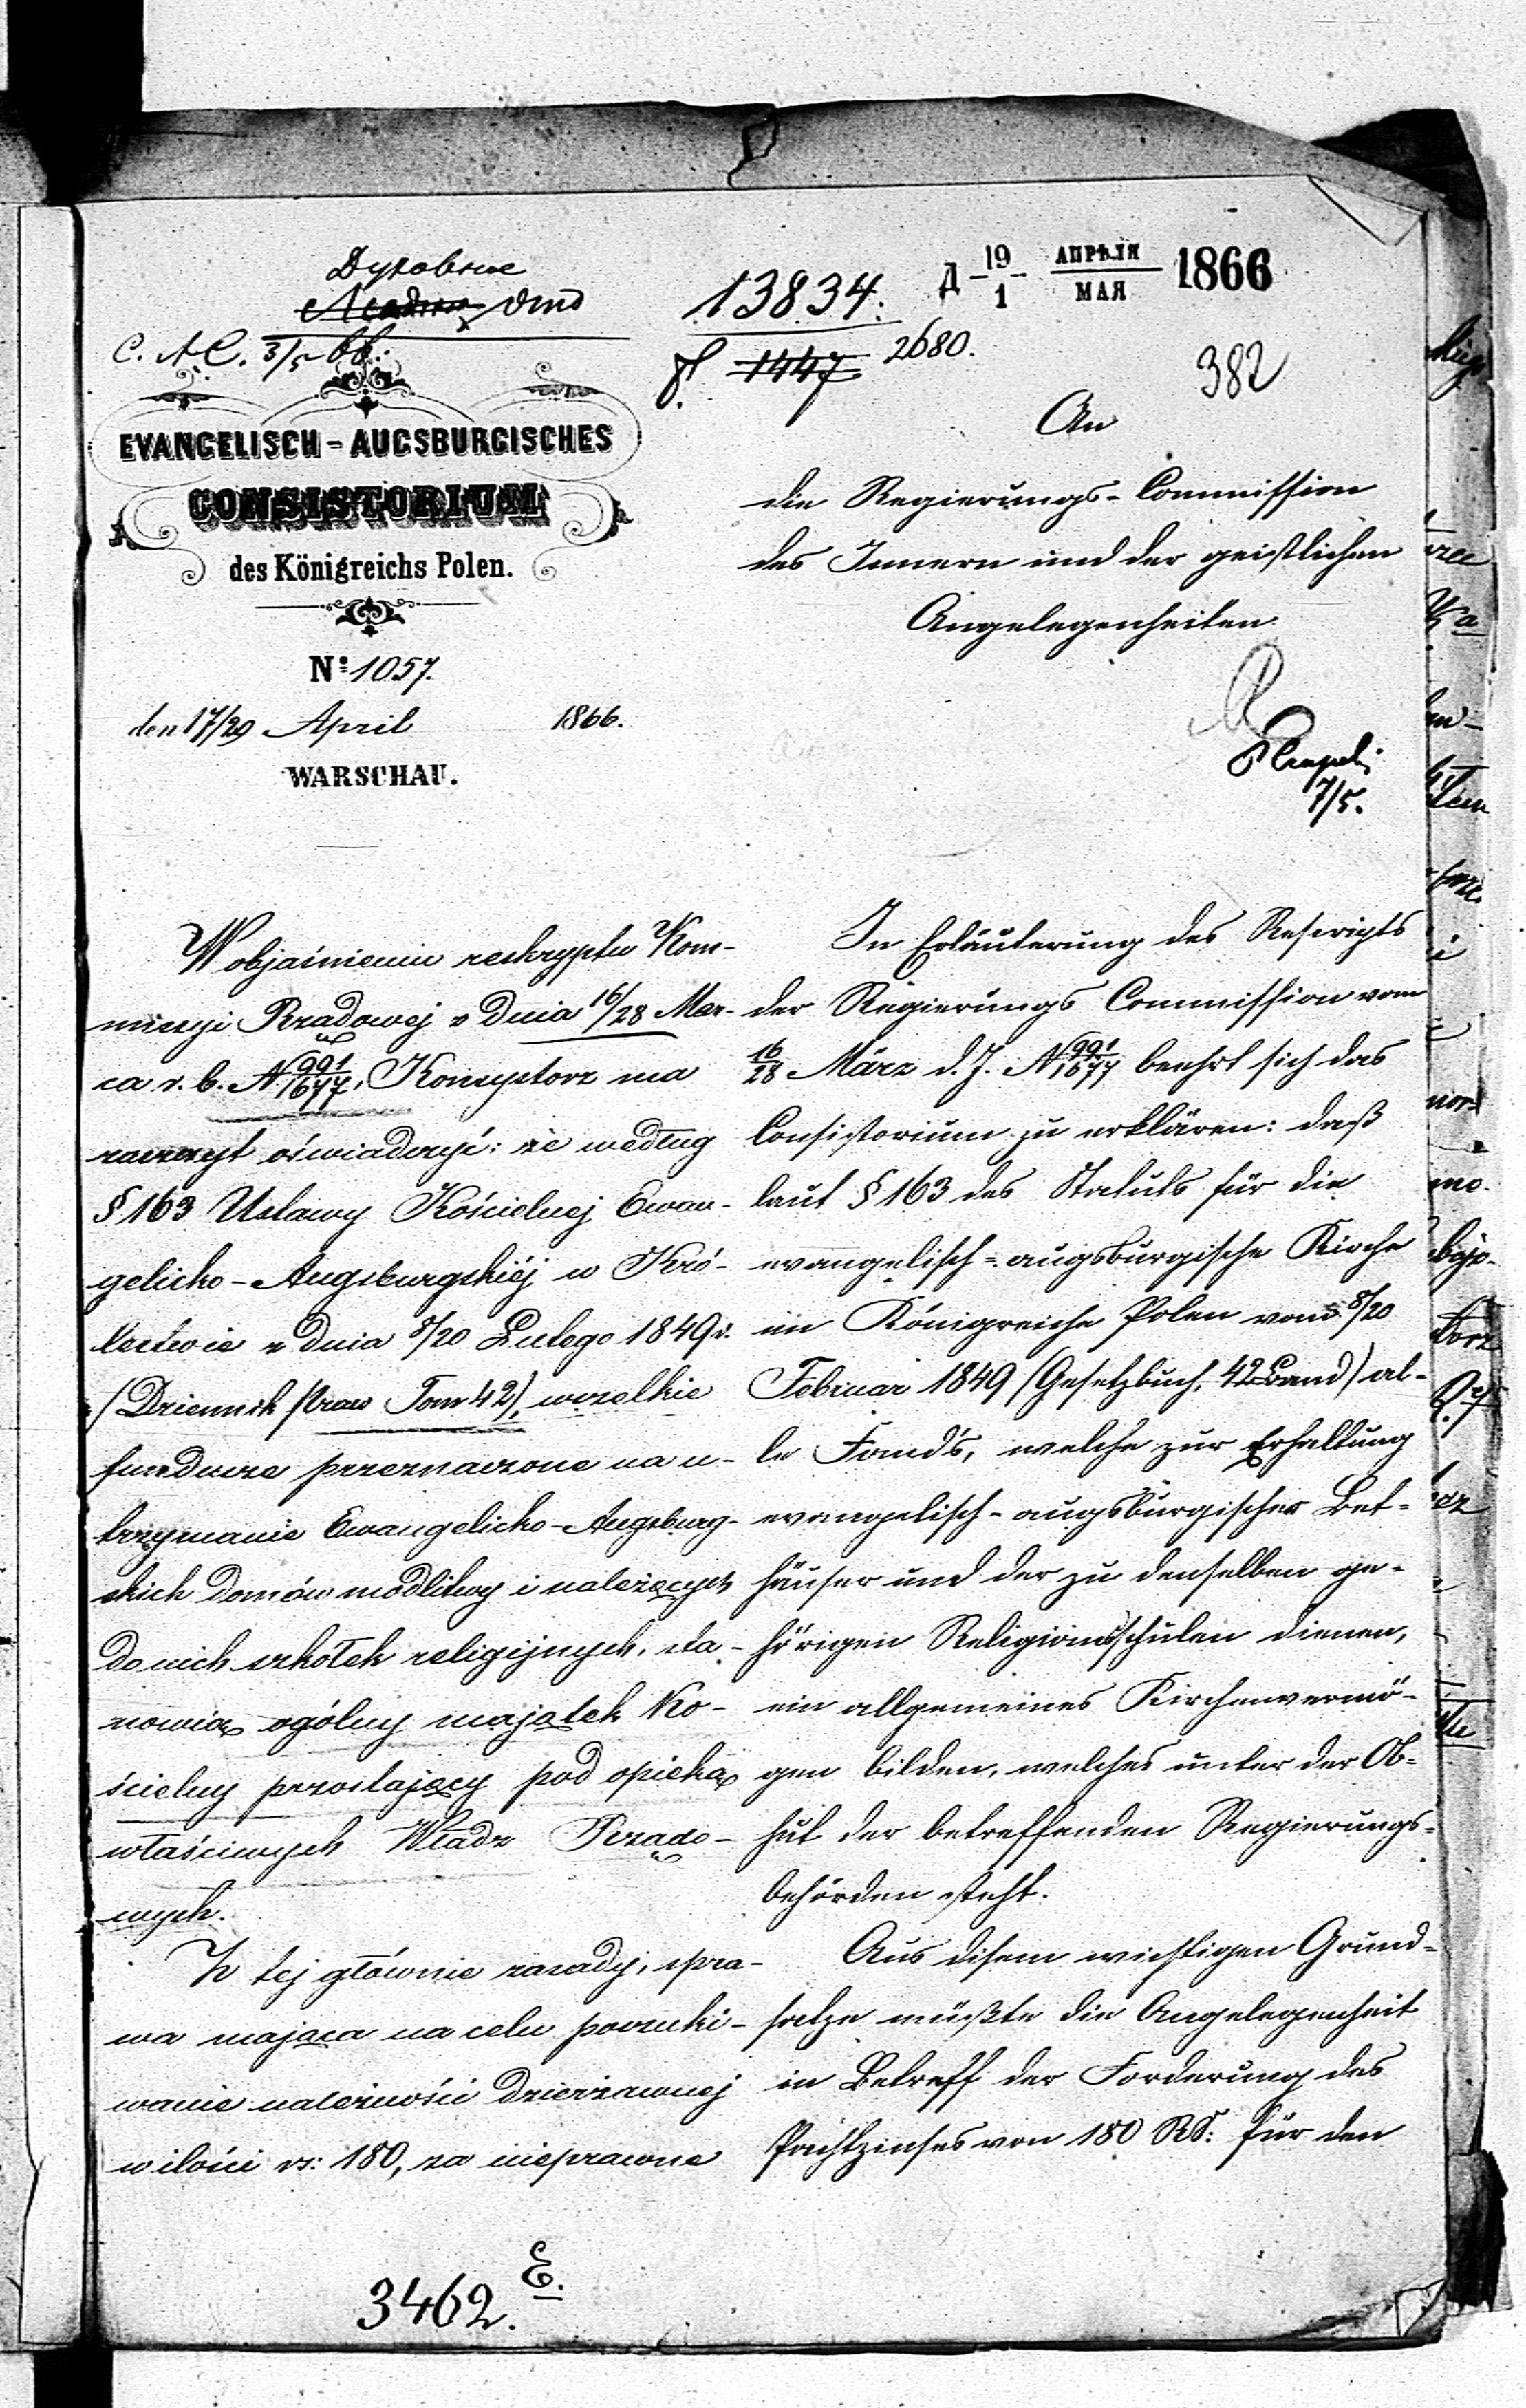 Духовные
13834.
Д 19/1 АПРѢЛЯ/МАЯ 1866
C. A. C. 3/5 66.
1447 2680.
382
EVANGELISCH-AUGSBURGISCHES
CONSISTORIUM
des Königreichs Polen.
No 1057.
den 17/29 April 1866.
WARSCHAU.
An
die Regierungs-Commission
des Innern und der geistlichen
Angelegenheiten.
7/5.
W objaśnieniu reskryptu Kom-
missyi Rządowej z Dnia 16/28 Mar-
ca r. b. N 991/1677, Konsystorz ma
zaszczyt oświadczyć: że według
§ 163 Ustawy Kościelnej Ewan-
gelicko-Augsburgskiéj w Kró-
lestwie z dnia 8/20 Lutego 1849 r.
(Dziennik Praw Tom 42), wszelkie
fundusze przeznaczone na u-
trzymanie Ewangelicko-Augsburg-
skich domów modlitwy i należących
do nich szkółek religijnych, sta-
nowią ogólny majątek Ko-
ścielny pozostający pod opieką
właściwych Władz Rządo-
wych.
Z tej głównie zasady, spra-
wa mająca na celu poszuki-
wanie należności dzierżawnej
w ilości rs: 180, za nieprawne
In Erläuterung des Rescripts
der Regierungs Commission vom
16/28 März d. J. N 991/1677 beehrt sich das
Consistorium zu erklären: daß
laut § 163 des Statuts für die
evangelisch-augsburgische Kirche
im Königreiche Polen vom 8/20
Februar 1849 (Gesetzbuch, 42 Band) al-
le Fonds, welche zur Erhaltung
evangelisch-augsburgischer Bet-
häuser und der zu denselben ge-
hörigen Religionsschulen dienen,
ein allgemeines Kirchenvermö-
gen bilden, welches unter der Ob-
hut der betreffenden Regierungs-
behörden steht.
Aus disem wichtigen Grund-
satze müßte die Angelegenheit
in Betreff der Forderung des
Pachtzinses von 180 RS: für den
3462. E.